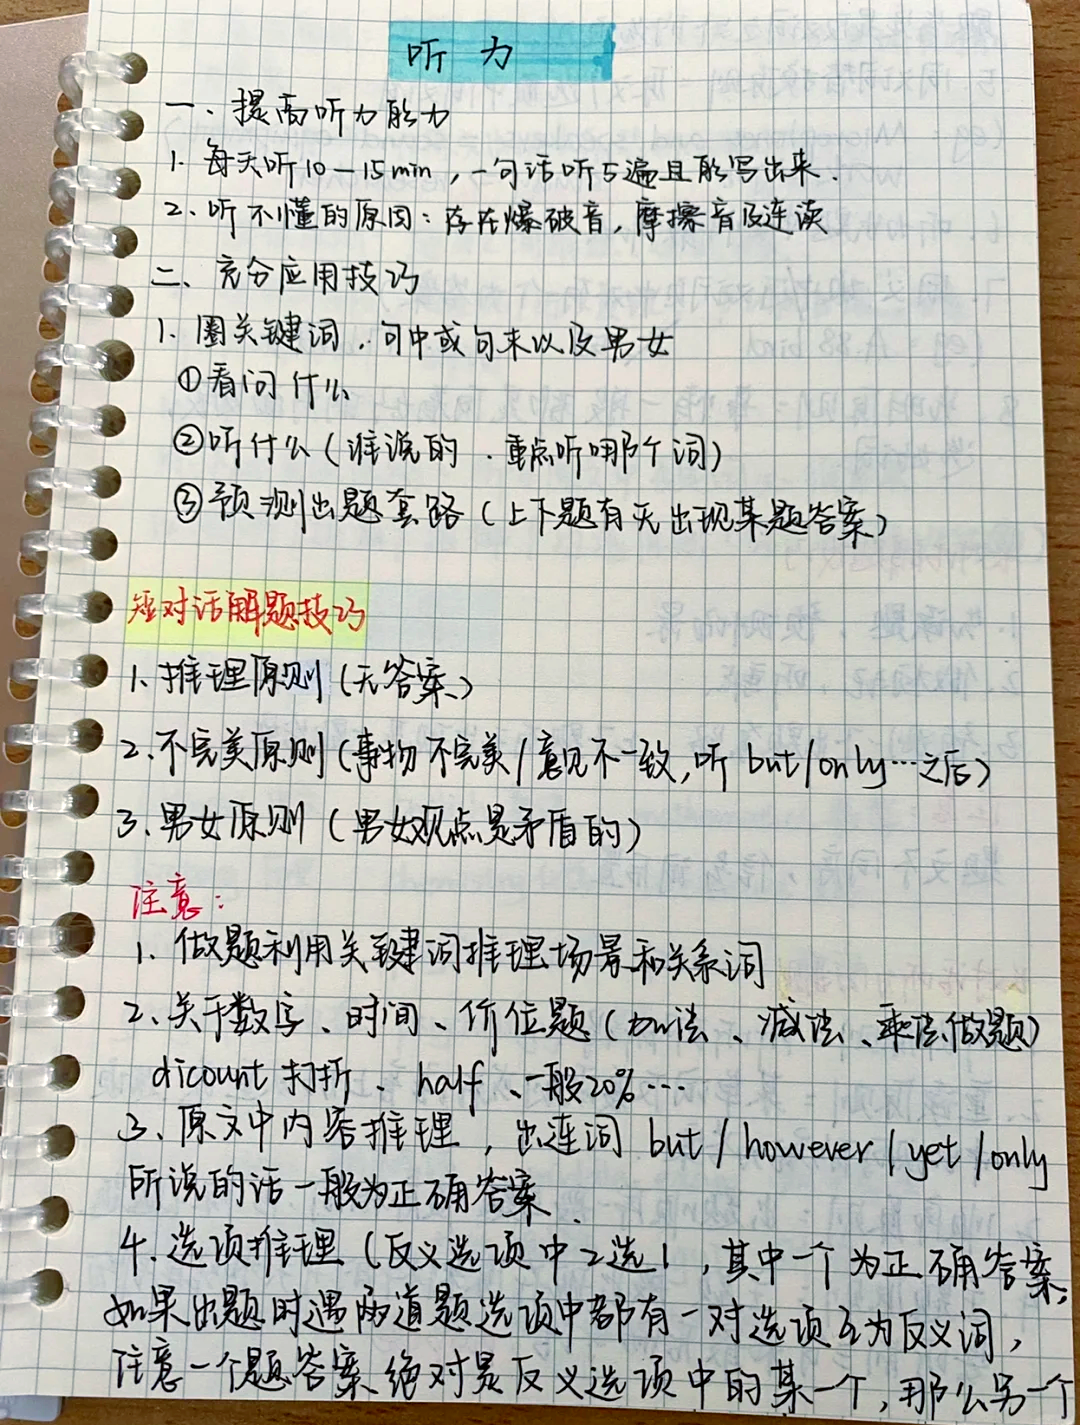 听力
一、提高听力能力
1. 每天听10—15min，一句话听5遍且能写出来.
2. 听不懂的原因：存在爆破音，摩擦音及连读
二、充分应用技巧
1. 圈关键词，句中或句末以及男女
①看问什么
②听什么（谁说的、重点听哪个词）
③预测出题套路（上下题有无出现某题答案）
短对话解题技巧
1、推理原则（无答案）
2、不完美原则（事物不完美/意见不一致，听but/only…之后）
3、男女原则（男女观点是矛盾的）
注意：
1、做题利用关键词推理场景和关系词
2、关于数字、时间、价位题（加法、减法、乘法做题）
dicount打折、half、一般20%…
3、原文中内容推理，出连词but/however/yet/only
所说的话一般为正确答案.
4、选项推理（反义选项中2选1，其中一个为正确答案，
如果出题时遇两道题选项中都有一对选项互为反义词，
注意一个题答案绝对是反义选项中的某一个，那么另一个